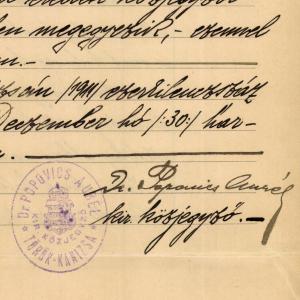 megegyezik,- ezennel
-n.-
/1911/ ezerkilencszáz
December hó /:30:/ har-
n.
Dr. Popovics Aurél
kir. közjegyző.-
Dr POPOVICS AURÉL
KIR. KÖZJEGYZŐ
* TÖRÖK-KANIZSA *